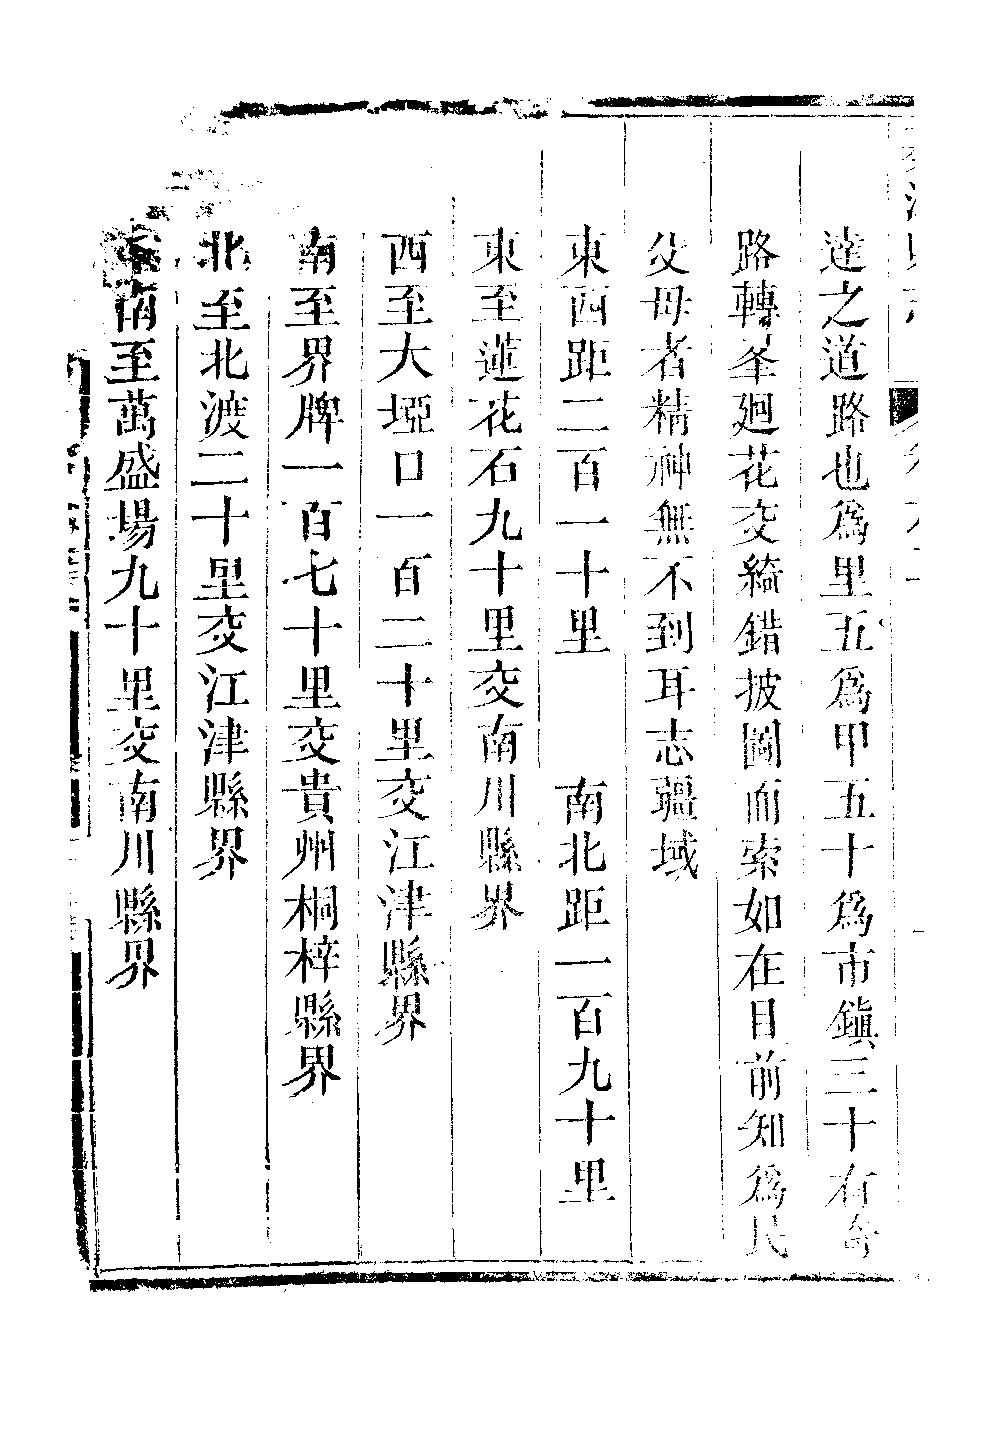 達之道路也爲里五爲甲五十爲市鎮三十有奇
路轉峯廻花交綺錯披圖而索如在目前知爲民
父母者精神無不到耳志疆域
東西距二百一十里 南北距一百九十里
東至蓮花石九十里交南川縣界
西至大埡口一百二十里交江津縣界
南至界牌一百七十里交貴州桐梓縣界
北至北渡二十里交江津縣界
東南至萬盛場九十里交南川縣界